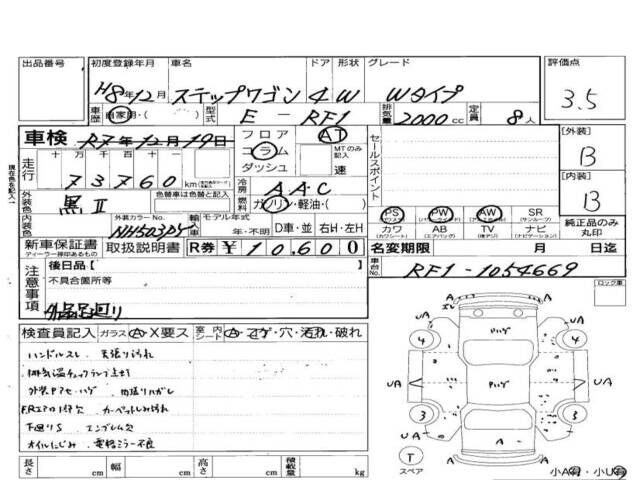 出品番号 初度登録年月 車名 ドア 形状 グレード 評価点
H8年12月 ステップワゴン 4 W Wタイプ 3.5
車歴 自家用・( ) 型式 E - RF1 排気量 2000cc 定員 8人
車検 R7年12月19日 フロア AT コラム ダッシュ MTのみ記入 速 セールスポイント [外装] B
走行 十 万 千 百 十 73760 km
冷房 AAC [内装] B
外装色 黒Ⅱ 色替車は色替と記入 燃料 ガソリン・軽油・( )
PS PW AW SR
(サンルーフ)
内装色 外装カラーNo. NH503PY 輪車 モデル年式 年・不明 D車・並 右H・左H カワ AB TV ナビ 純正品のみ丸印
(カワシート) (エアバッグ) (ナビゲーション)
新車保証書 取扱説明書 R券 ¥10,600 名変期限 月 日迄
ディーラー捺印あるもの
注意事項 後日品[ ] 車台No. RF1-1054669
不具合箇所等 ロック車
外品足廻り
検査員記入 ガラス A・X要ス 室内シート A・コゲ・穴・汚れ・破れ
ハンドルスレ. 天張り汚れ
排気温チェックランプ点灯
外装Pアセ・ハゲ 内張りハガレ
カーペットしみ汚れ
下廻りS. エンブレム欠
オイルにじみ. 電格ミラー不良
長さ cm 幅 cm 高さ cm 積載量 kg
UA A UA
4 ハゲ 4
UA A ハゲ A UA
3 3
UA UA
T A A
スペア 小A有・小U有
現在色を記入